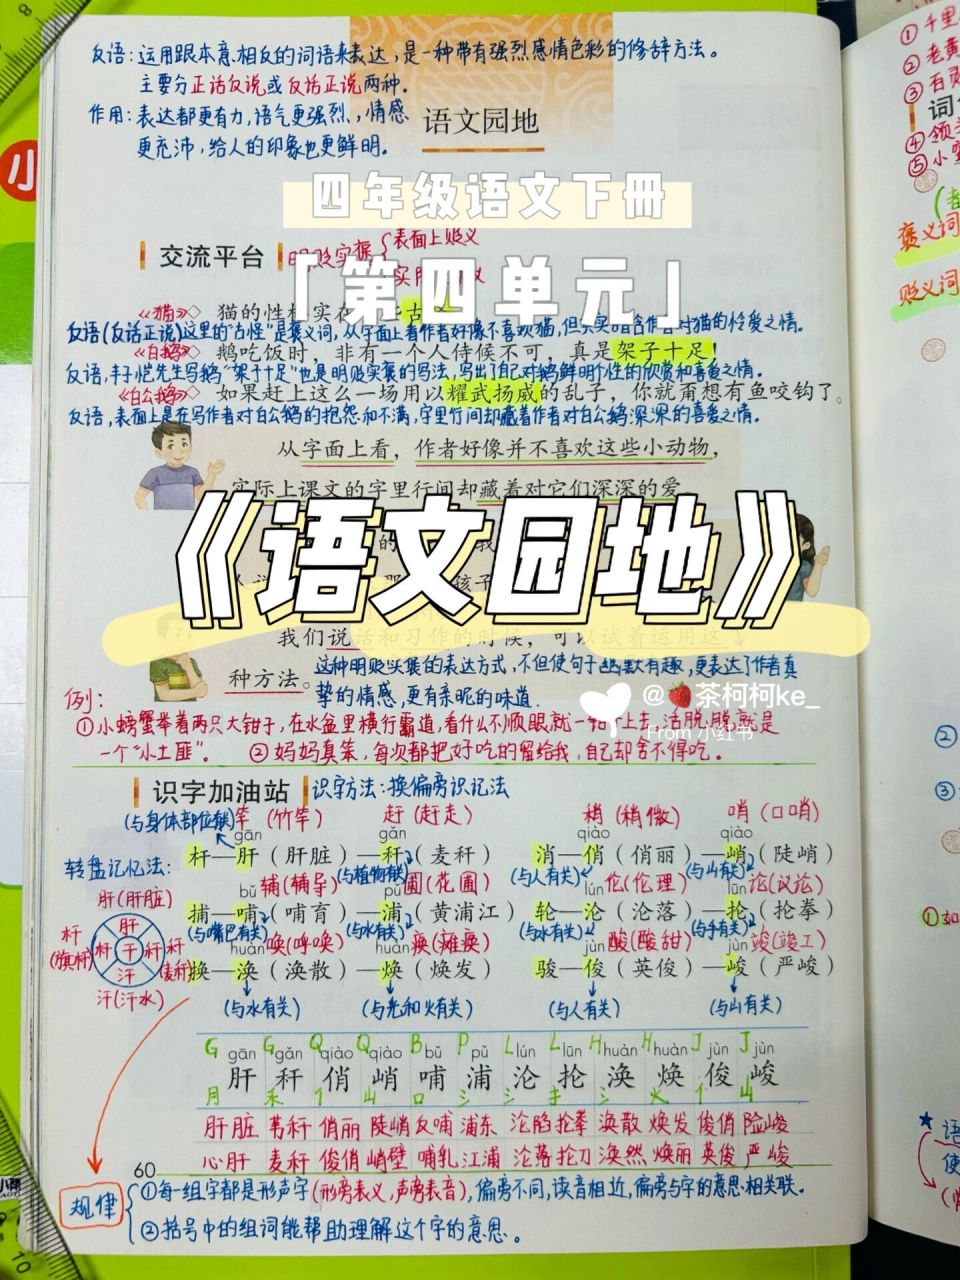 反语：运用跟本意相反的词语来表达，是一种带有强烈感情色彩的修辞方法。
主要分正话反说或反话正说两种。
作用：表达都更有力，语气更强烈，情感
更充沛，给人的印象也更鲜明。
语文园地
四年级语文下册
「第四单元」
交流平台
明贬实褒
表面上贬义
《猫》
猫的性格实在
反语(反话正说)这里的"古怪"是褒义词，从字面上看作者好像不喜欢猫，但
作者对猫的怜爱之情。
《白鹅》 鹅吃饭时，非有一个人侍候不可，真是架子十足！
反语，丰子恺先生写鹅"架子十足"也是明贬实褒的写法，写出了自己对鹅鲜明个性的欣赏和喜爱之情。
《白公鹅》 如果赶上这么一场用以耀武扬威的乱子，你就甭想有鱼咬钩了。
反语，表面上是在写作者对白公鹅的抱怨和不满，字里行间却藏着作者对白公鹅深深的喜爱之情。
从字面上看，作者好像并不喜欢这些小动物，
实际上课文的字里行间却藏着对它们深深的爱
《语文园地》
我们说话和习作的时候，可以试着运用这
种方法。
这种明贬实褒的表达方式，不但使句子幽默有趣，更表达了作者真
挚的情感，更有亲昵的味道
@🍓茶柯柯ke_
From 小红书
例：
①小螃蟹举着两只大钳子，在水盆里横行霸道，看什么不顺眼就一钳
上去，活脱脱就是
一个"小土匪"。 ②妈妈真笨，每次都把好吃的留给我，自己却舍不得吃。
识字加油站 识字方法：换偏旁识记法
(与身体部位有关) 竿(竹竿) 赶(赶走) 稍(稍微) 哨(口哨)
gān gǎn qiào qiào
转盘记忆法：
杆—肝（肝脏）—秆（麦秆） 消—俏（俏丽）—峭（陡峭）
肝(肝脏)
(与植物有关) (与人有关) (与山有关)
辅(辅导) 圃(花圃) 伦(伦理) 论(议论)
bǔ pǔ lún lūn
捕—哺（哺育）—浦（黄浦江） 轮—沦（沦落）—抡（抡拳）
杆(旗杆) 肝 杆 干 秆 汗 秆(麦秆)
汗(汗水)
(与嘴巴有关) (与水有关) (与水有关) (与手有关)
唤(呼唤) 痪(瘫痪) 酸(酸甜) 竣(竣工)
huàn huàn jùn jùn
换—涣（涣散）—焕（焕发） 骏—俊（英俊）—峻（严峻）
(与水有关) (与光和火有关) (与人有关) (与山有关)
G G Q Q B P L L H H J J
gān gǎn qiào qiào bǔ pǔ lún lūn huàn huàn jùn jùn
肝 秆 俏 峭 哺 浦 沦 抡 涣 焕 俊 峻
月 禾 亻 山 口 氵 氵 扌 氵 火 亻 山
肝脏 苇秆 俏丽 陡峭 反哺 浦东 沦陷 抡拳 涣散 焕发 俊俏 险峻
心肝 麦秆 俊俏 峭壁 哺乳 江浦 沦落 抡刀 涣然 焕丽 英俊 严峻
60
规律
①每一组字都是形声字(形旁表义，声旁表音)，偏旁不同，读音相近，偏旁与字的意思相关联。
②括号中的组词能帮助理解这个字的意思。
①千里
②老黄
③百灵
④领头
⑤小蜜
褒义词
贬义词
②
③
①如